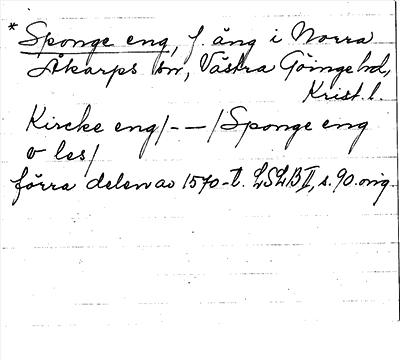 * Sponge eng, f. äng i Norra
Åkarps sn, Västra Göinge hd,
Krist. l.
Kircke eng/- – /Sponge eng
o les/
förra delen av 1570-t. LSLB II, s. 90. orig.